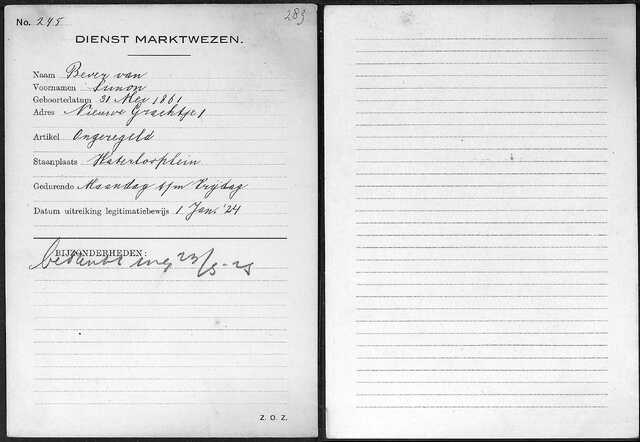 No. 245
283
DIENST MARKTWEZEN.
Naam Bever van
Voornamen Simon
Geboortedatum 31 Mei 1861
Adres Nieuwe Grachtje 1
Artikel Ongeregeld
Staanplaats Waterlooplein
Gedurende Maandag t/m Vrijdag
Datum uitreiking legitimatiebewijs 1 Jan. '24
BIJZONDERHEDEN:
bedankt ing 23/3-25
Z. O. Z.